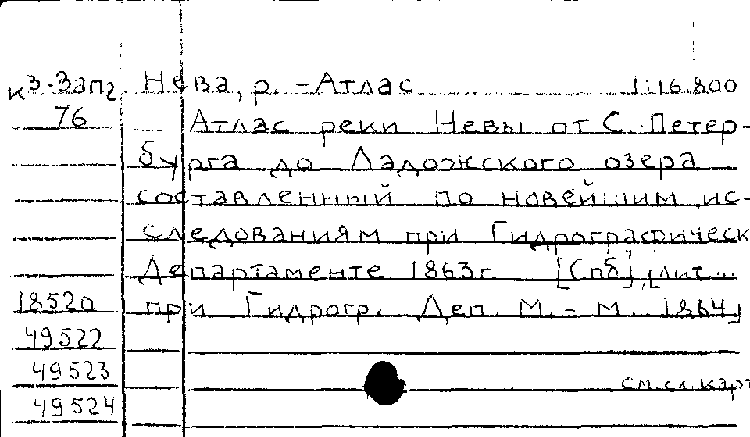 К3-Зап2 Нева, р. - Атлас 1:16.800
76 Атлас реки Невы от С. Петер-
бурга до Ладожского озера
составленный по новейшим ис-
следованиям при Гидрографическ
Департаменте 1863 г. [Спб], [лит...
18520 при Гидрогр. Деп. М. - М. 1864]
49522
49523 см. сл. карт
49524